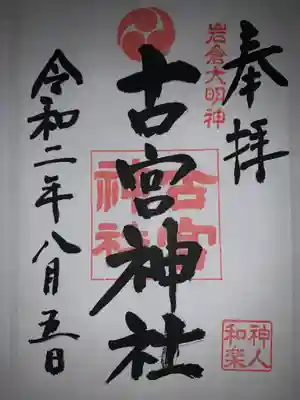 奉拝
岩倉大明神
古宮神社
古宮神社
令和二年八月五日
神人和楽